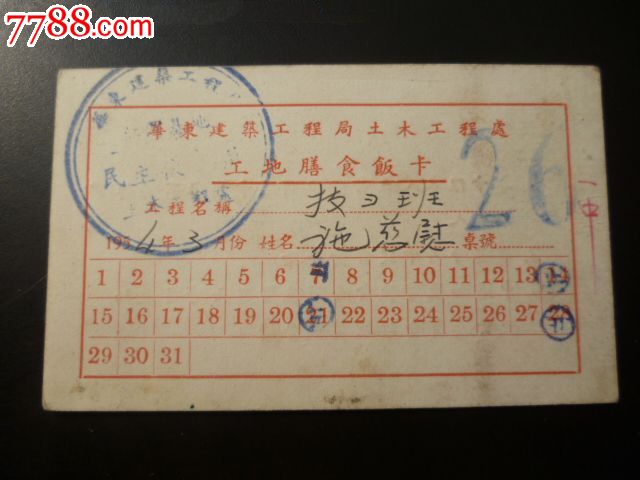 7788.com
華東建築工程
華東建築工程局土木工程處
工地膳食飯卡
民主
26
工程名稱 技习班
1954年3月份 姓名 施慈慰 桌號
1 2 3 4 5 6 7 8 9 10 11 12 13 14
15 16 17 18 19 20 21 22 23 24 25 26 27 28
29 30 31